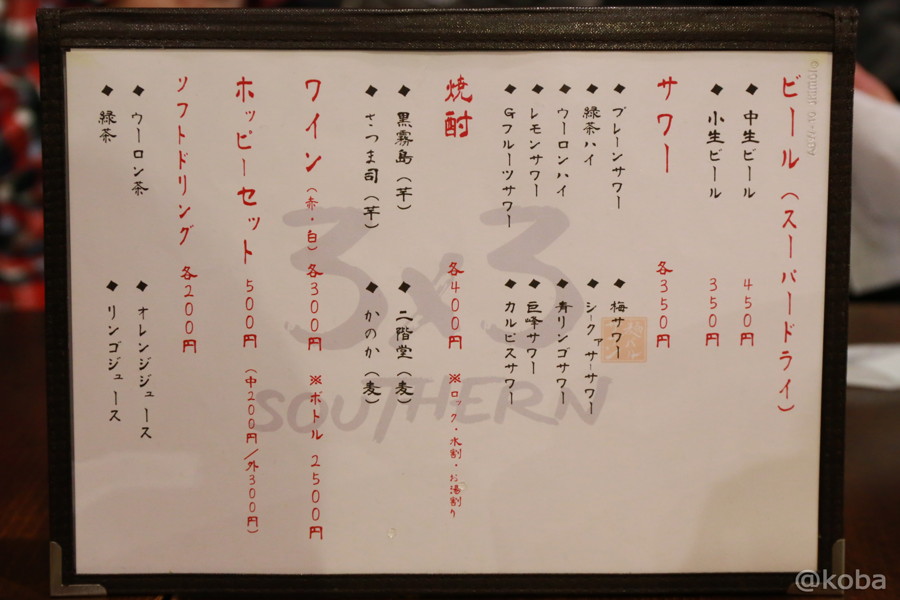 ビール（スーパードライ）
◆中生ビール 450円
◆小生ビール 350円
サワー 各350円
◆プレーンサワー ◆梅サワー
◆緑茶ハイ ◆シークァーサーサワー
◆ウーロンハイ ◆青リンゴサワー
◆レモンサワー ◆巨峰サワー
◆Gフルーツサワー ◆カルピスサワー
焼酎 各400円 ※ロック・水割・お湯割り
◆黒霧島（芋） ◆二階堂（麦）
◆さつま司（芋） ◆かのか（麦）
ワイン（赤・白）各300円 ※ボトル 2500円
ホッピーセット 500円（中200円／外300円）
ソフトドリング 各200円
◆ウーロン茶 ◆オレンジジュース
◆緑茶 ◆リンゴジュース
3x3
SOUTHERN
@koba